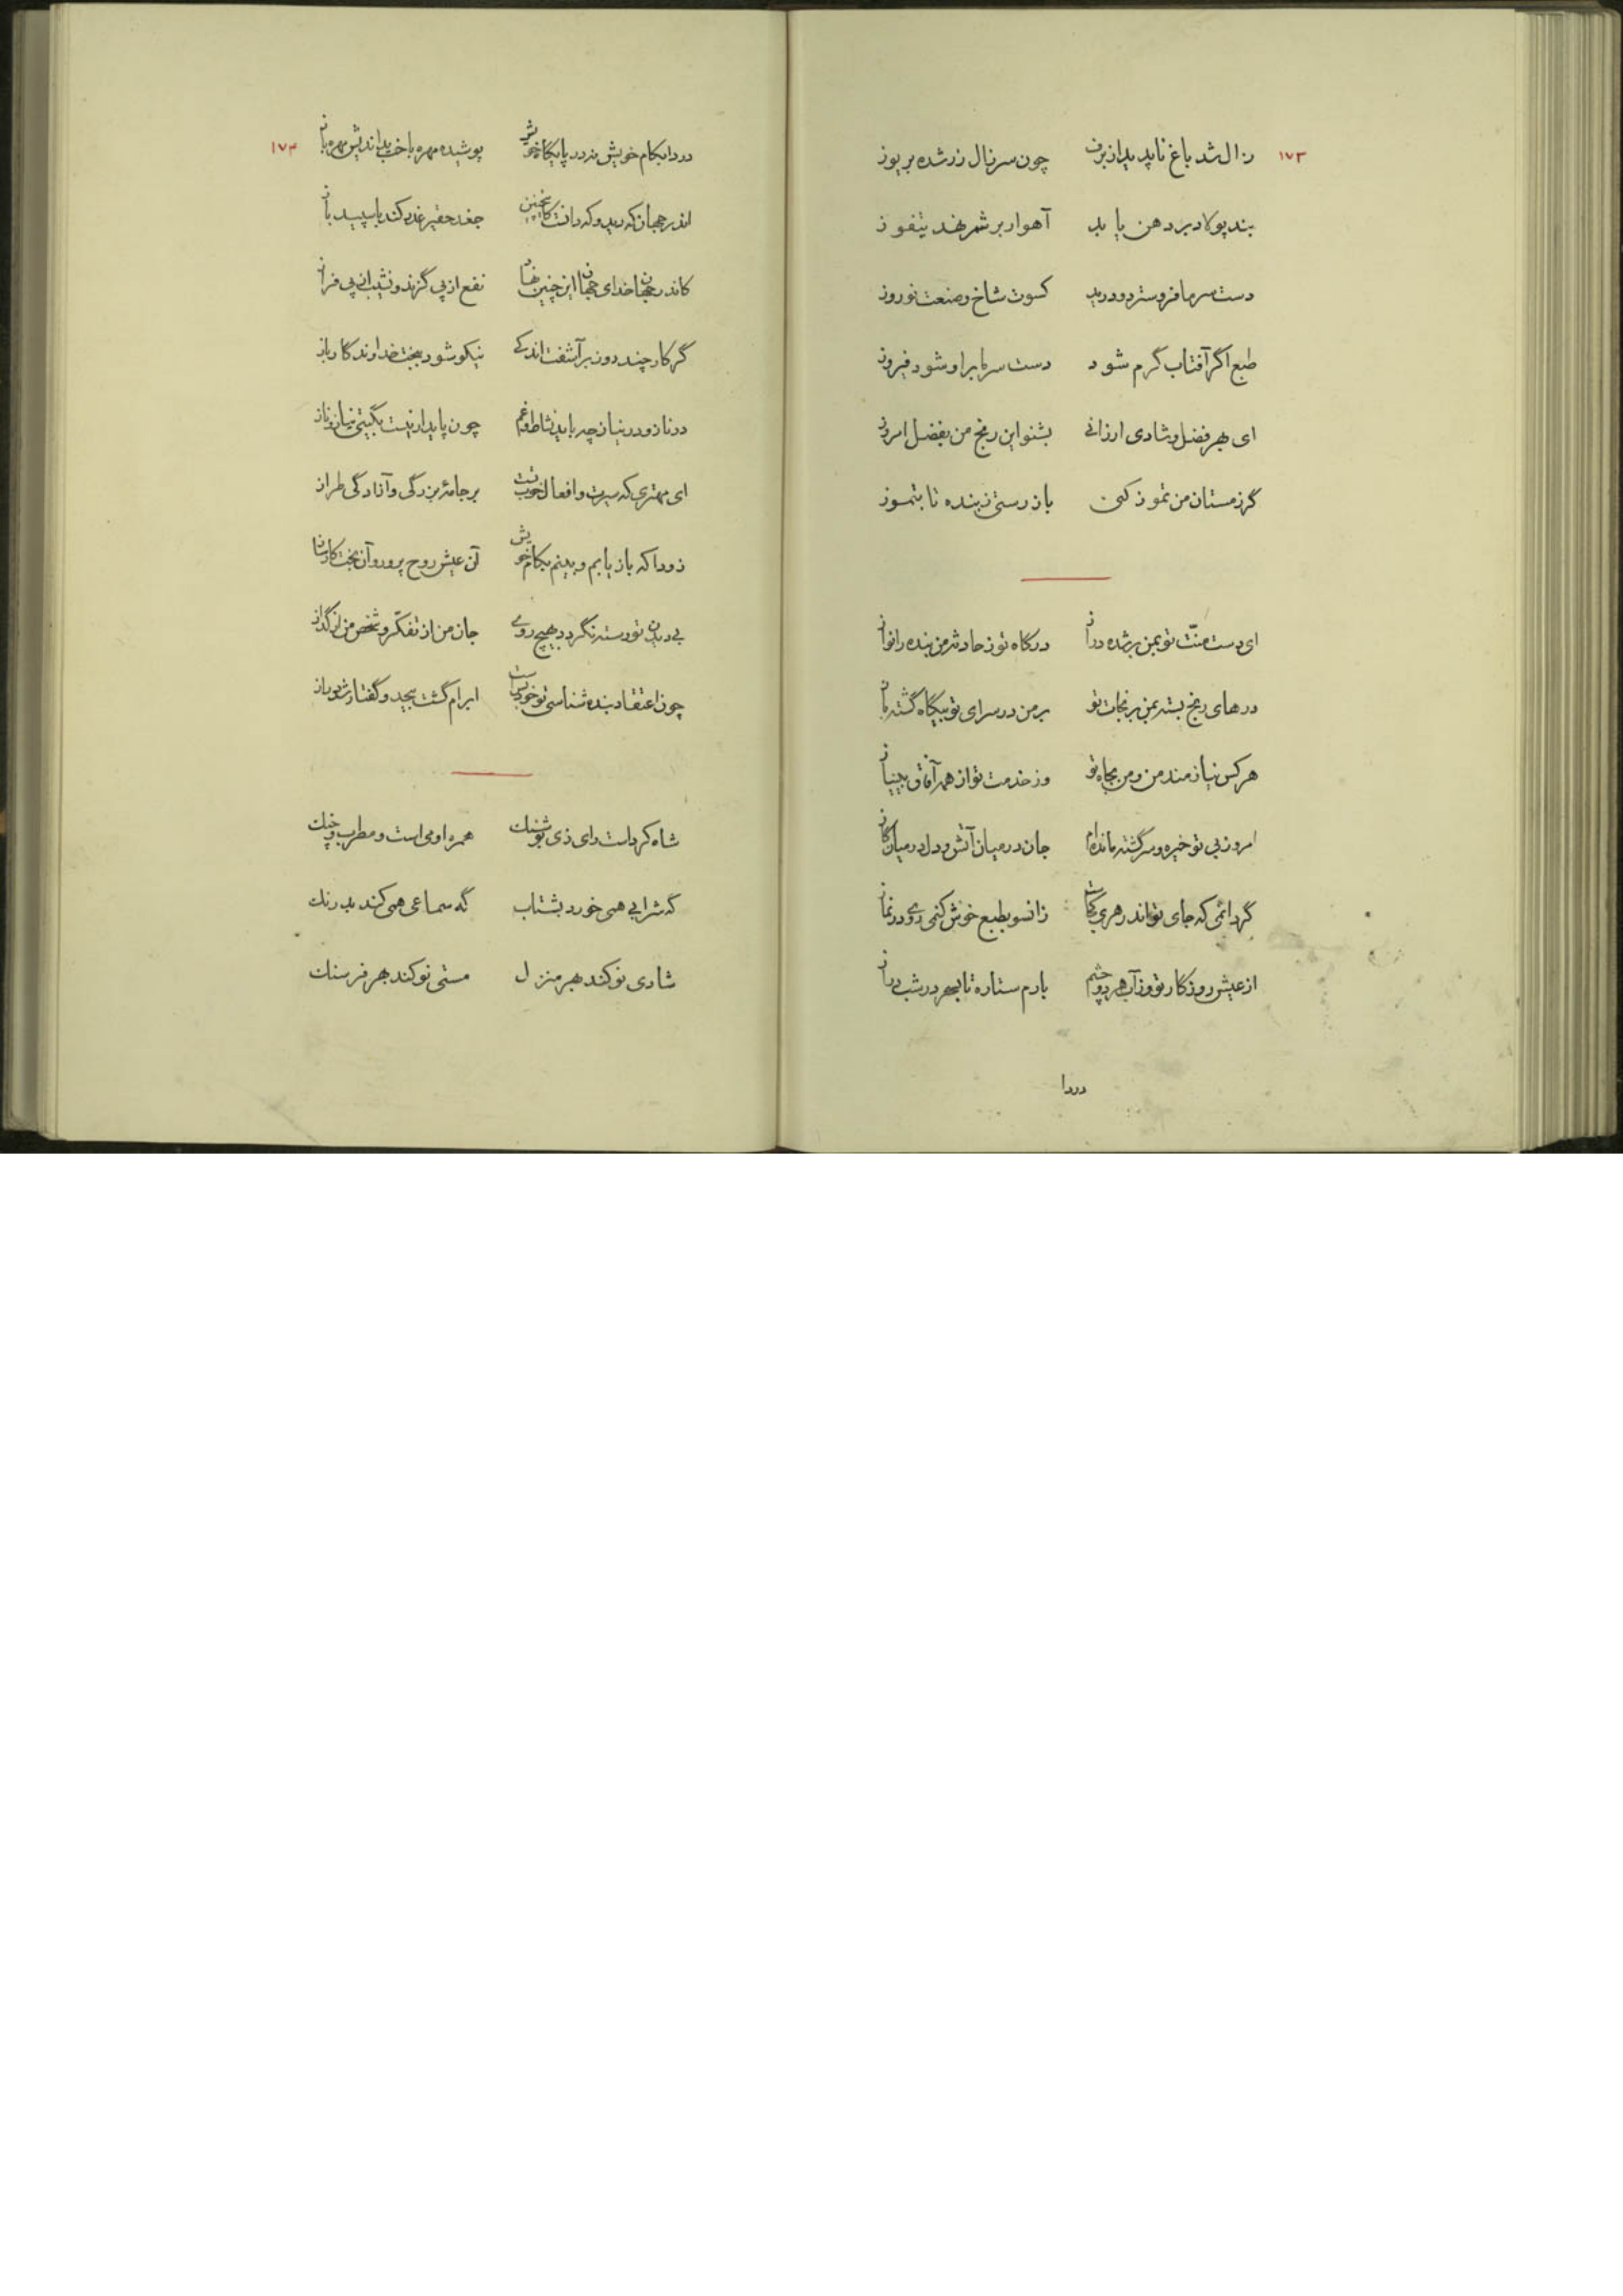 ۱۷۳
زال شد باغ ناپدید از برف چون سر زال زر شده بر پوز
بند پولاد بر دهن یابد آهو ار بر شمر نهد پتفوز
دست سرما فرو سترد و درید کسوت شاخ و صنعت نوروز
طبع اگر آفتاب گرم شود دست سرما برا و شود فیروز
ای بهر فضل و شادی ارزانی بشنو این رنج من بفضل امروز
گر زمستان من تموز کنی باز رستی ز بنده تا بتموز
ای دست منّت تو بمن بر شده دراز درگاه تو ز حادثه من بنده را نواز
درهای رنج بسته بمن بر نجات تو بر من در سرای تو بیگاه گشته باز
هر کس نیازمند من و من بجاه تو وز خدمت تو از همه آفاق بی نیاز
امروز بی تو خیره و سرگشته مانده‌ام جان در میان آتش و دل در میان گاز
گر دانمی که جای تو اندر هری کجاست زانسو بطبع خوش کنمی روی در نماز
از عیش روزگار تو وز آب هر دو چشم بارم ستاره تا بسحر در شب دراز
دردا
۱۷۴
دردا بکام خویش نه در پایگاه خویش پوشیده مهره باخت بداندیش مهره باز
اندر جهان که دید و که دانست کاینچنین جغد حقیر غدر کند با سپید باز
کاندر جهان خدای جهان این چنین نهاد نفع از پی گزند و نشیب از پی فراز
گر کار چند روز بر آشفت اندکی نیکو شود ببخت خداوند کارباز
در ناز و در نیاز چه باید نشاط و غم چون پایدار نیست بگیتی نیاز و ناز
ای مهتری که سیرت و افعال خوب تست بر جامهٔ بزرگی و آزادگی طراز
زودا که باز یابم و بینم بکام خویش آن عیش روح پرور و آن بخت کارساز
بی دیدن تو رسته نگردد بهیچ روی جان من از تفکر و شخص من از گداز
چون اعتقاد بنده شناسی تو خود بس است ابرام گشت بیحد و گفتار شد دراز
شاه کردست رای زی پوشنگ همره او می است و مطرب و چنگ
که شرابی همی خورد بشتاب گه سماعی همی کند بدرنگ
شادی نو کند بهر منزل مستی نو کند بهر فرسنگ